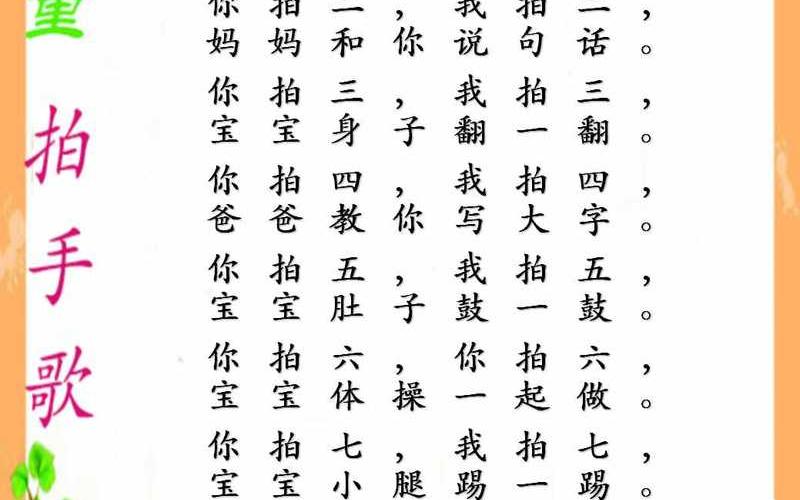 童拍手歌
你拍二，我拍二，
妈妈和你说句话。
你拍三，我拍三，
宝宝身子翻一翻。
你拍四，我拍四，
爸爸教你写大字。
你拍五，我拍五，
宝宝肚子鼓一鼓。
你拍六，你拍六，
宝宝体操一起做。
你拍七，我拍七，
宝宝小腿踢一踢。